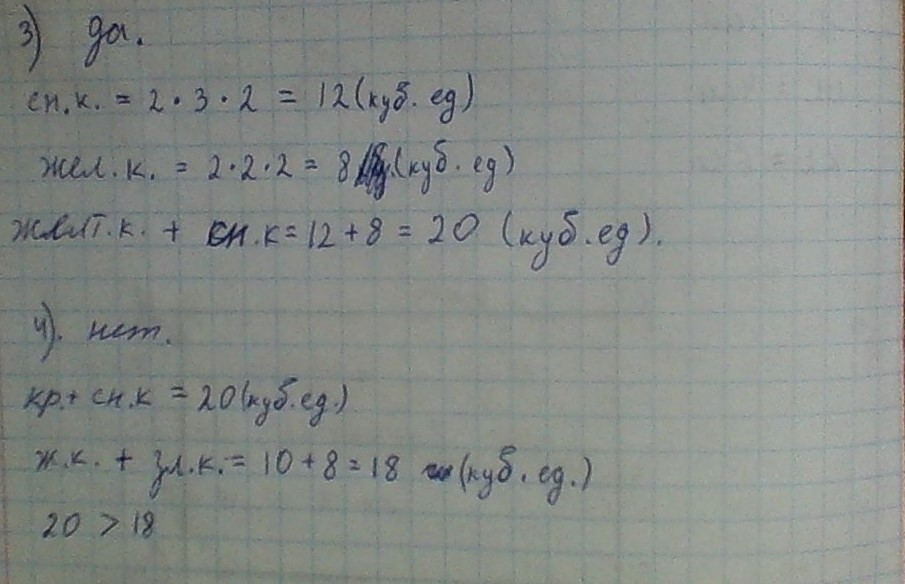 3) да.
сн.к. = 2 · 3 · 2 = 12 (куб. ед)
жел.к. = 2·2·2 = 8 (куб. ед)
желт.к. + сн.к = 12 + 8 = 20 (куб.ед).
4). нет.
кр.+ сн.к = 20 (куб.ед.)
ж.к. + зл.к. = 10 + 8 = 18 (куб. ед.)
20 > 18